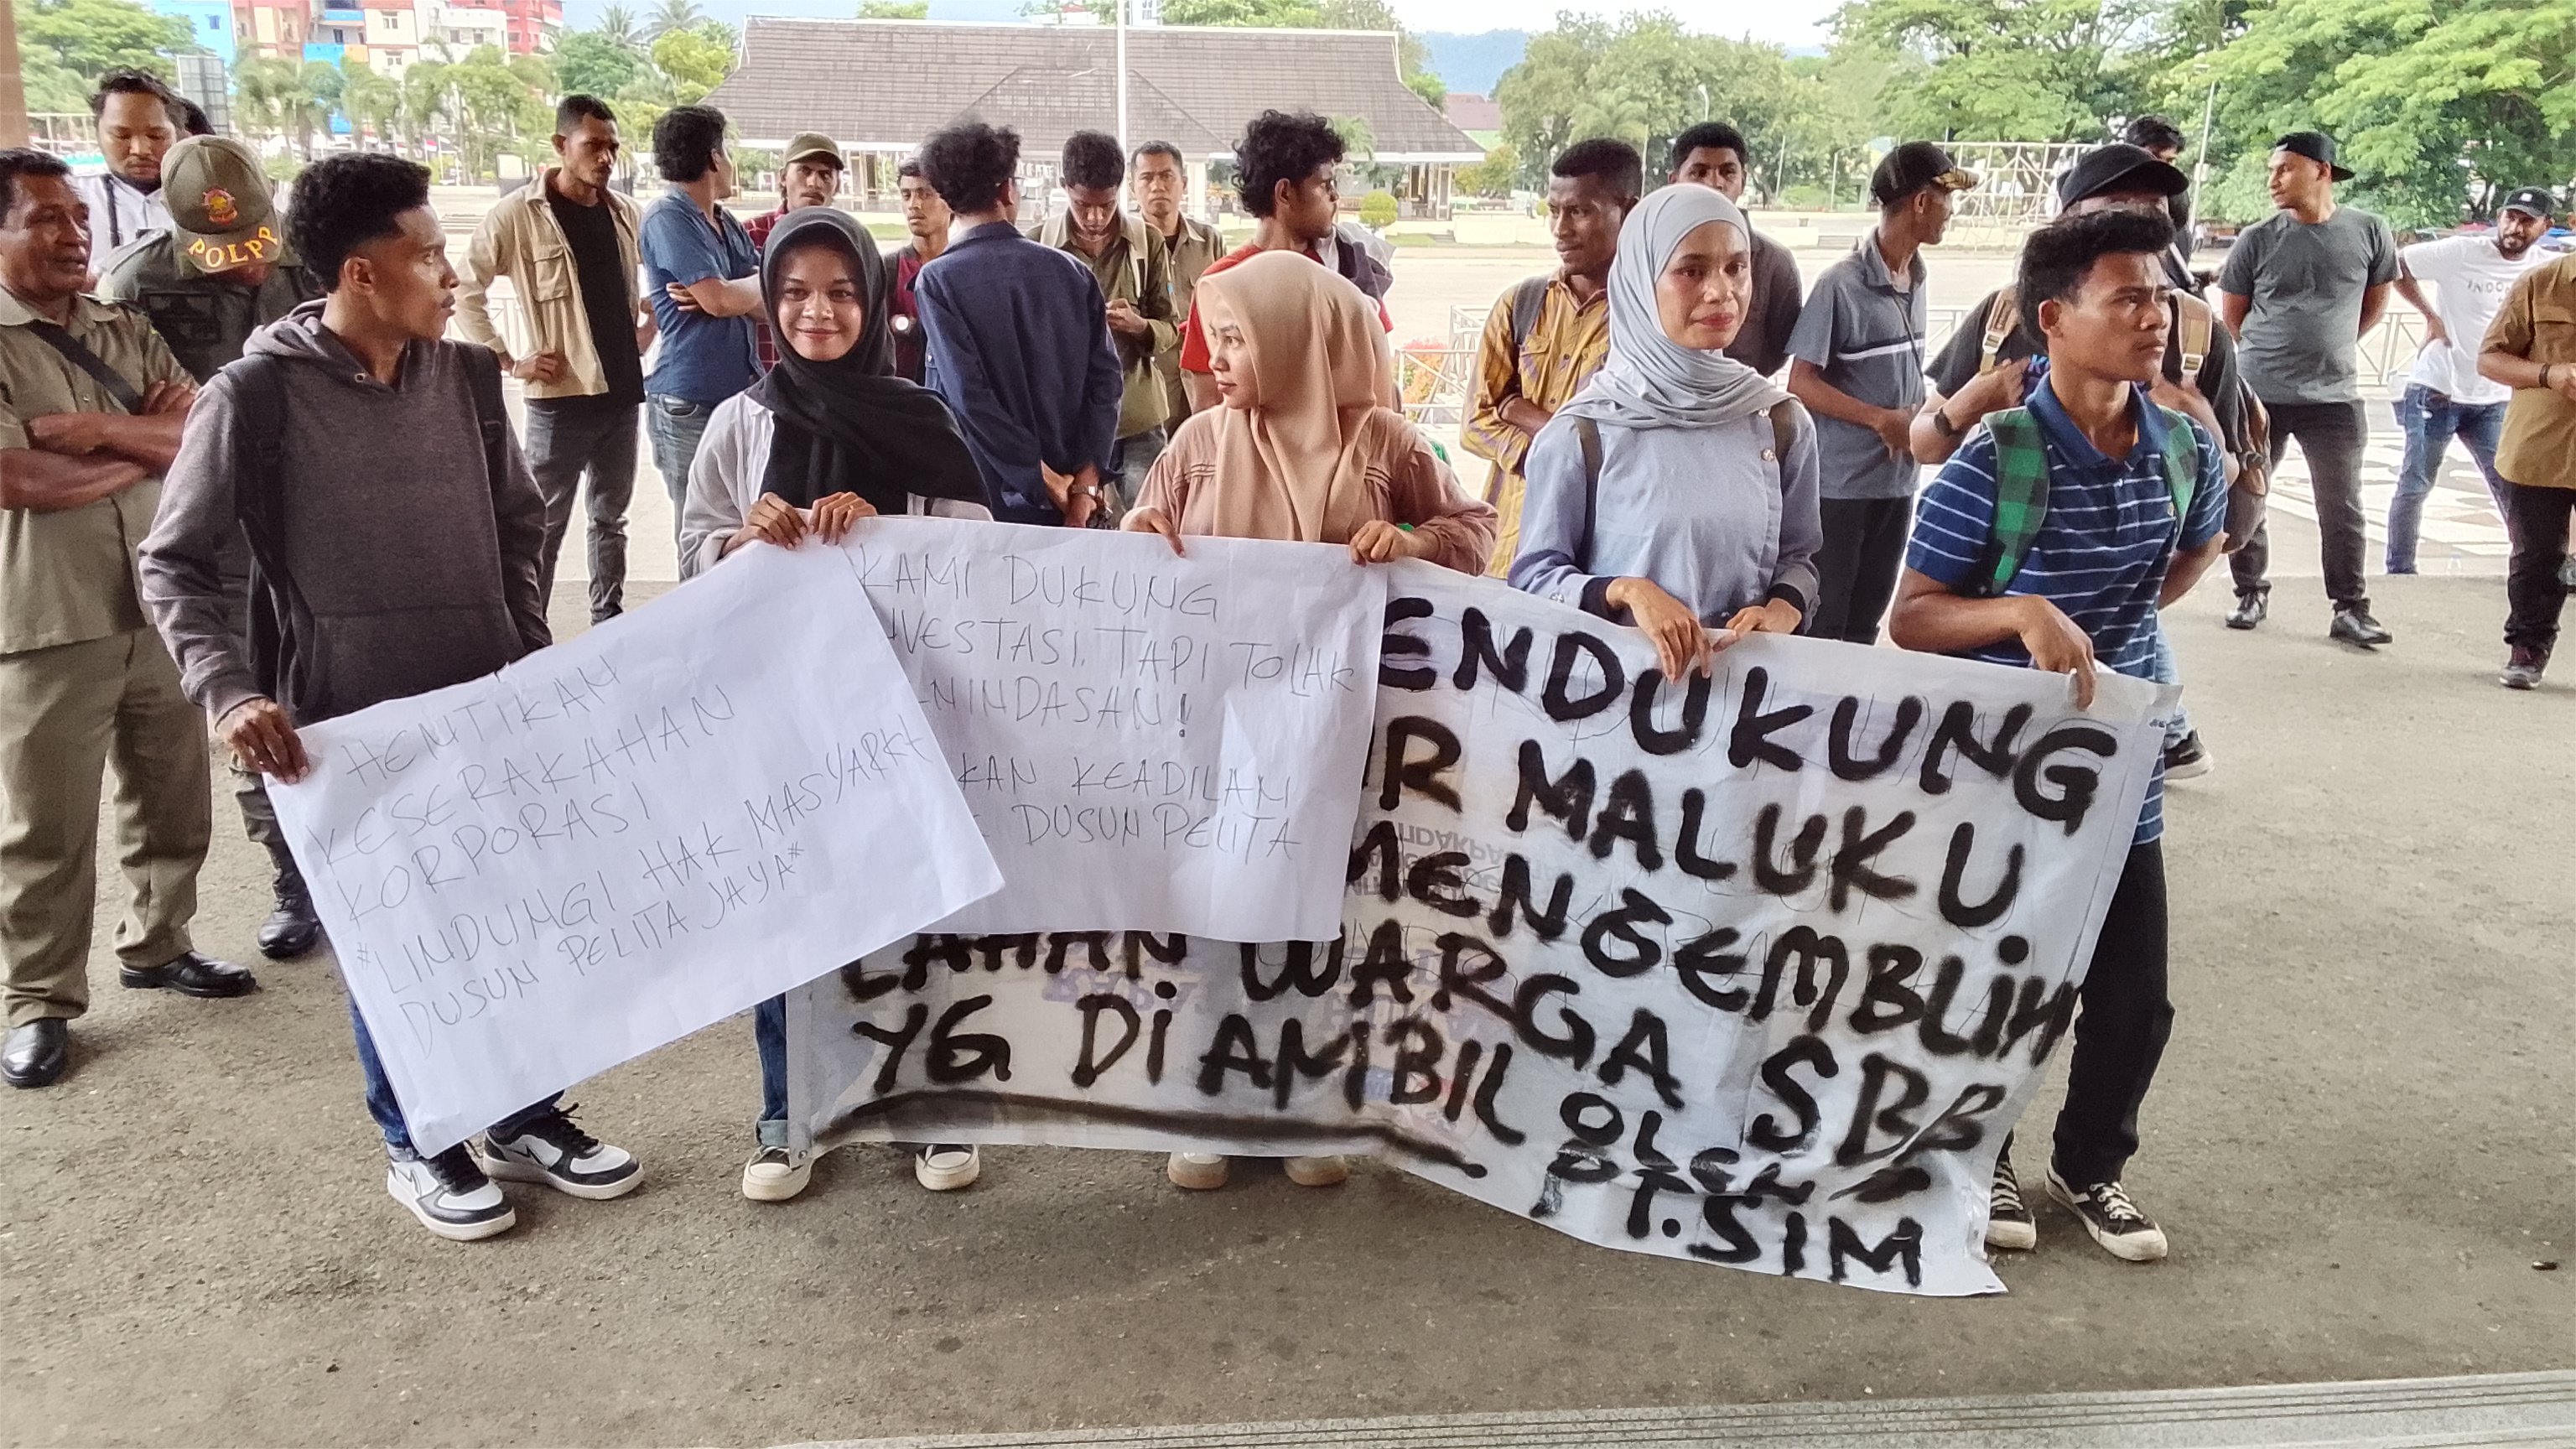 POLPP
HENTIKAN
KESERAKAHAN
KORPORASI
*LINDUNGI HAK MASYARKt
DUSUN PELITA JAYA*
KAMI DUKUNG
VESTASI. TAPI TOLAK
NINDASAN!
KAN KEADILAN
DUSUN PELITA
ENDUKUNG
R MALUKU
MENGEMBLiH
LAHAN WARGA SBB
YG Di AMBIL OLEH
PT.SIM